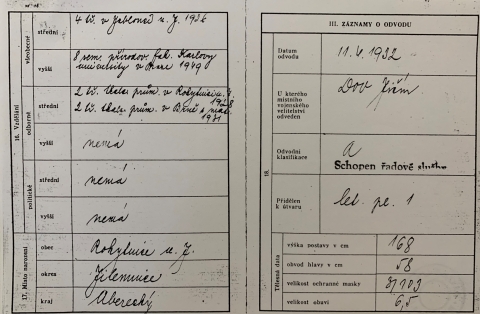 16. Vzdělání
všeobecné
střední
4 tř. v Jablonci n. J. 1926
vyšší
8 sem. přírodov. fak. Karlovy
university v Praze 1949
odborné
střední
2 tř. škola prům. v Rokytnici n. J.
1928
2 tř. škola prům. v Brně
1931
vyšší
nemá
politické
střední
nemá
vyšší
nemá
17. Místo narození
obec
Rokytnice n. J.
okres
Jilemnice
kraj
Liberecký
III. ZÁZNAMY O ODVODU
18.
Datum
odvodu
11. V. 1932
U kterého
místního
vojenského
velitelství
odveden
Dov Jičín
Odvodní
klasifikace
A
Schopen řadové služby
Přidělen
k útvaru
let. pl. 1
Tělesná data
výška postavy v cm
168
obvod hlavy v cm
58
velikost ochranné masky
3/103
velikost obuvi
6,5